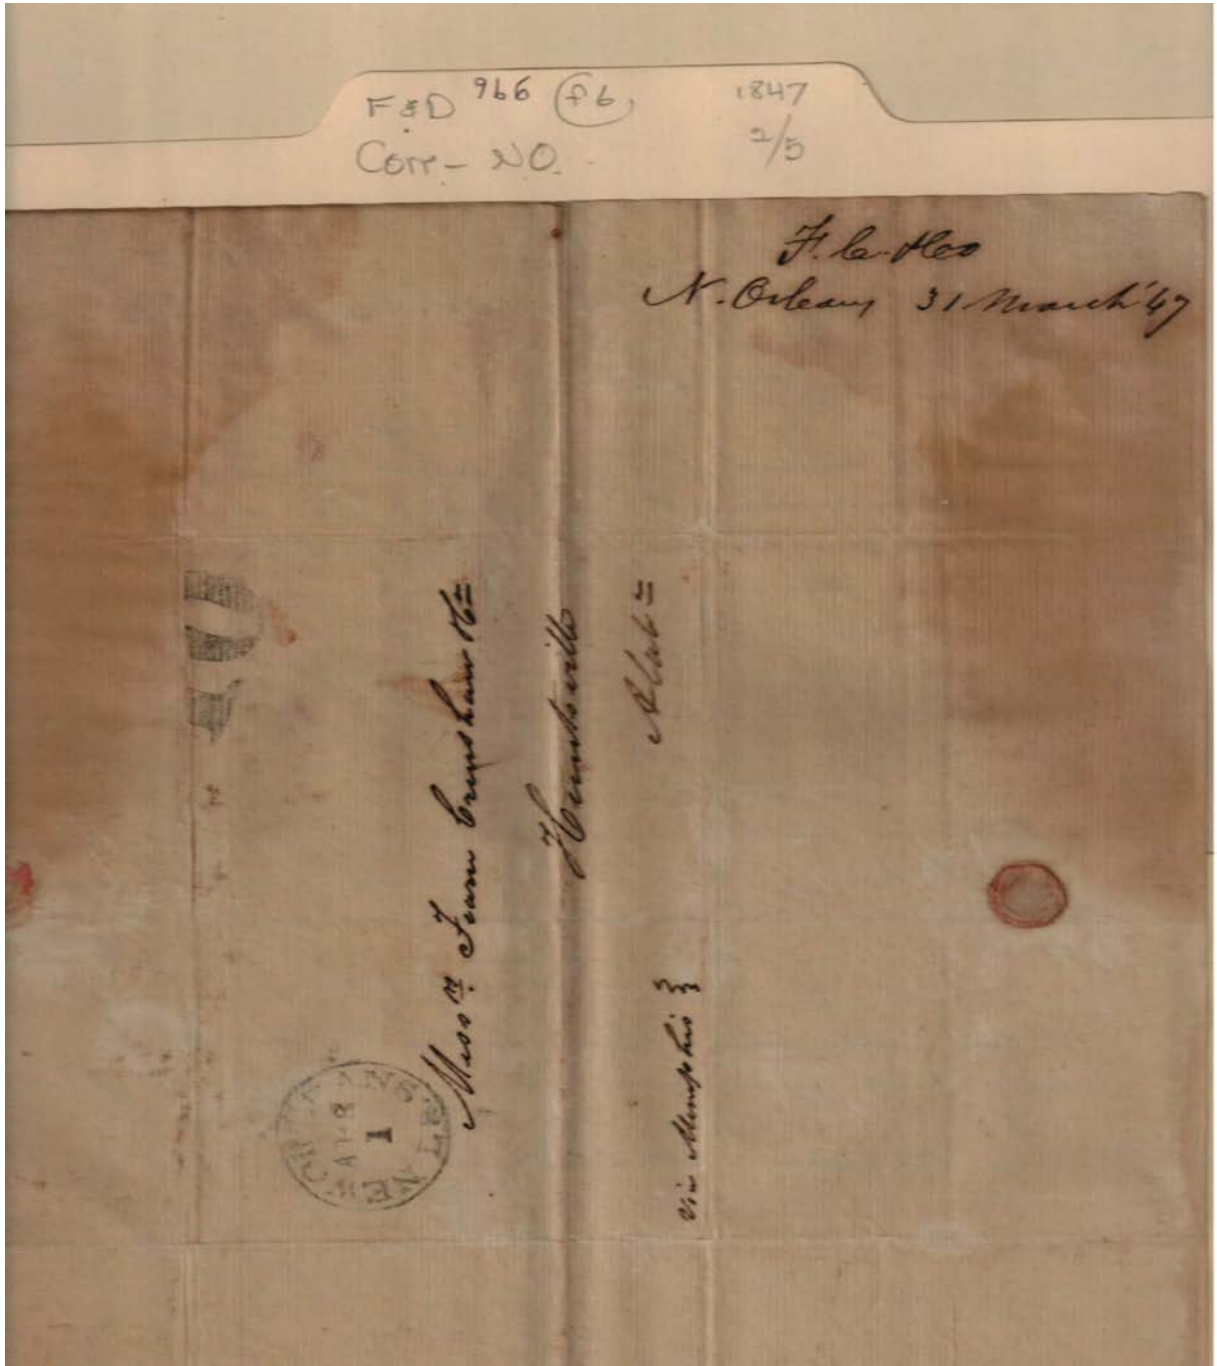 F&D 966 (f6) 1847
Corr- NO. 2/5
F. C. & Co
N. Orleans 31 March '47
10
Mess rs Fearn Crenshaw & Co
Huntsville
Alab a
via Memphis
NEW ORLEANS LA
APR
1